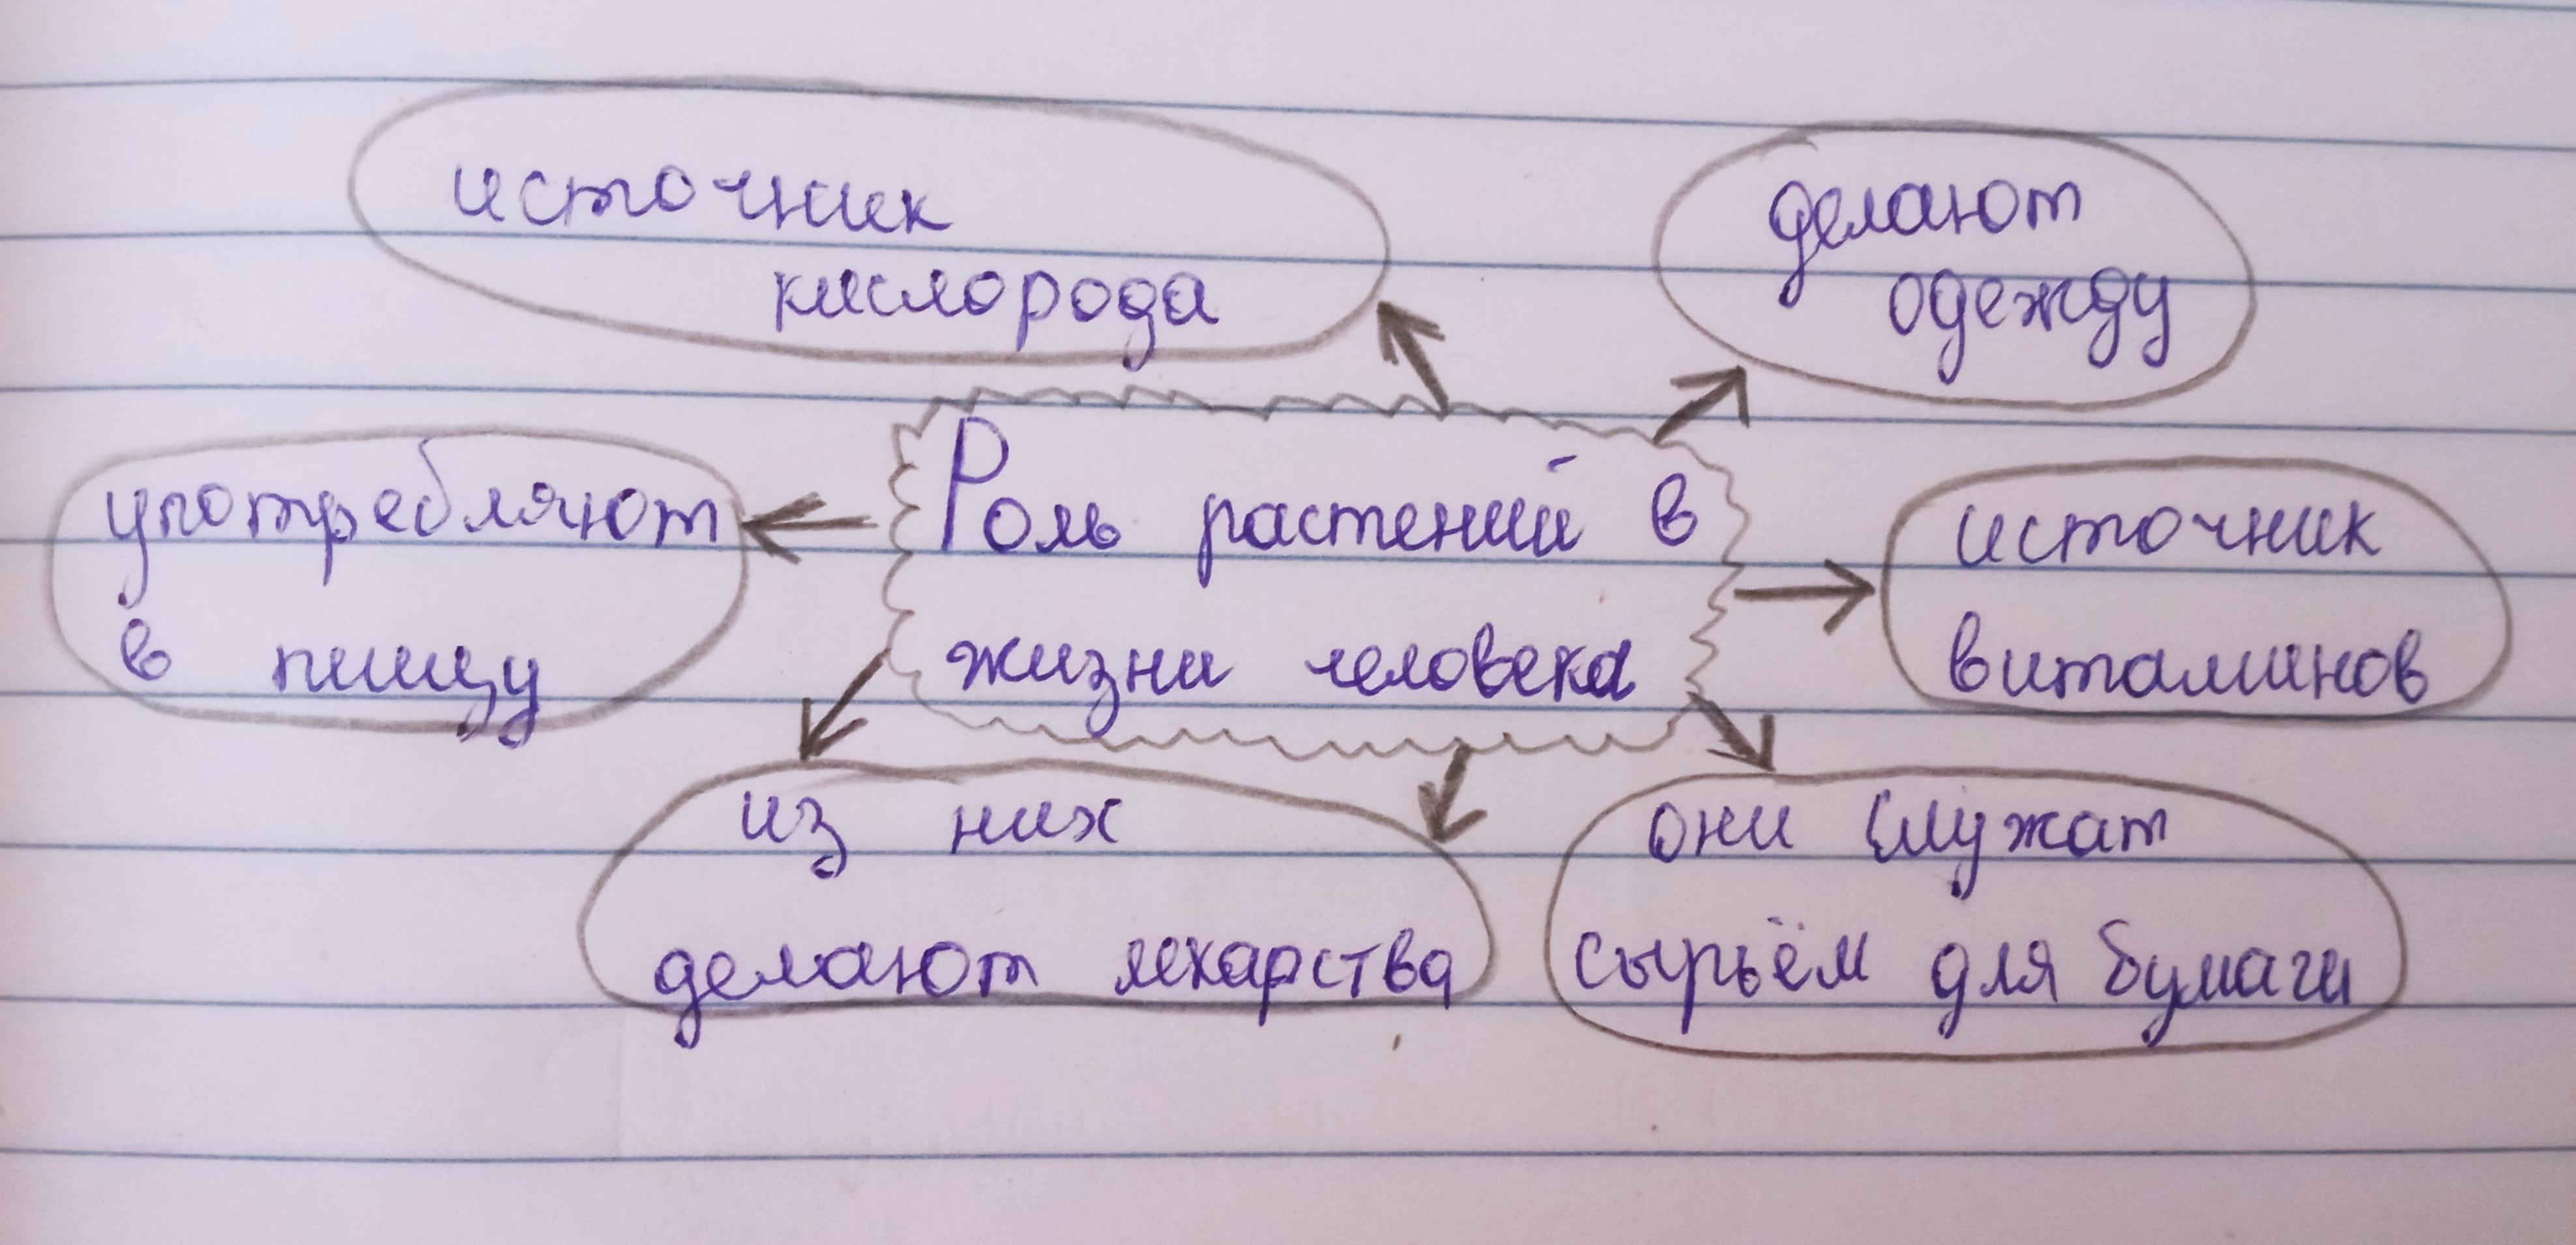 источник
кислорода
делают
одежду
употребляют
в пищу
Роль растений в
жизни человека
источник
витаминов
из них
делают лекарства
они служат
сырьём для бумаги